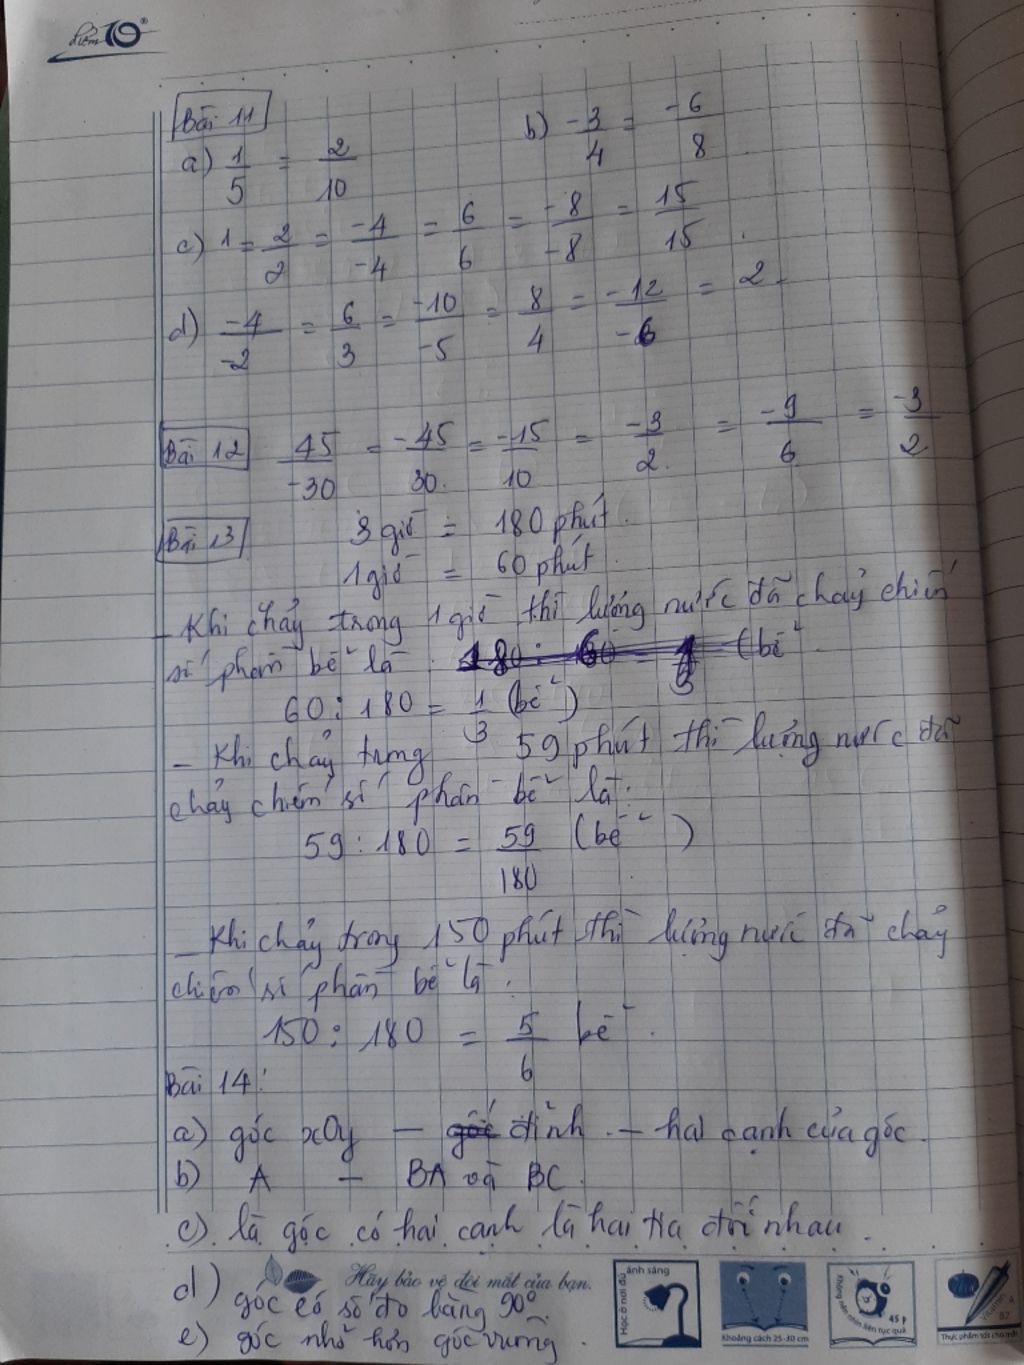 Điểm 10
Bài 11
a) 1/5 = 2/10 b) -3/4 = -6/8
c) 1 = 2/2 = -4/-4 = 6/6 = -8/-8 = 15/15.
d) -4/-2 = 6/3 = -10/-5 = 8/4 = -12/-6 = 2.
Bài 12 45/-30 = -45/30 = -15/10 = -3/2 = -9/6 = -3/2
Bài 13 3 giờ = 180 phút.
1 giờ = 60 phút
- Khi chảy trong 1 giờ thì lượng nước đã chảy chiếm
số phần bể là : (bể
60 : 180 = 1/3 (bể)
- Khi chảy trong 59 phút thì lượng nước đã
chảy chiếm số phần bể là:
59 : 180 = 59/180 (bể)
- Khi chảy trong 150 phút thì lượng nước đã chảy
chiếm số phần bể là :
150 : 180 = 5/6 bể.
Bài 14:
a) góc xOy - góc đỉnh. - hai cạnh của góc.
b) A - BA và BC.
c). là góc có hai cạnh là hai tia đối nhau.
Hãy bảo vệ đôi mắt của bạn.
d) góc có số đo bằng 90°
e) góc nhỏ hơn góc vuông.
Học ở nơi đủ ánh sáng
Khoảng cách 25-30 cm
45 p
Thực phẩm tốt cho mắt